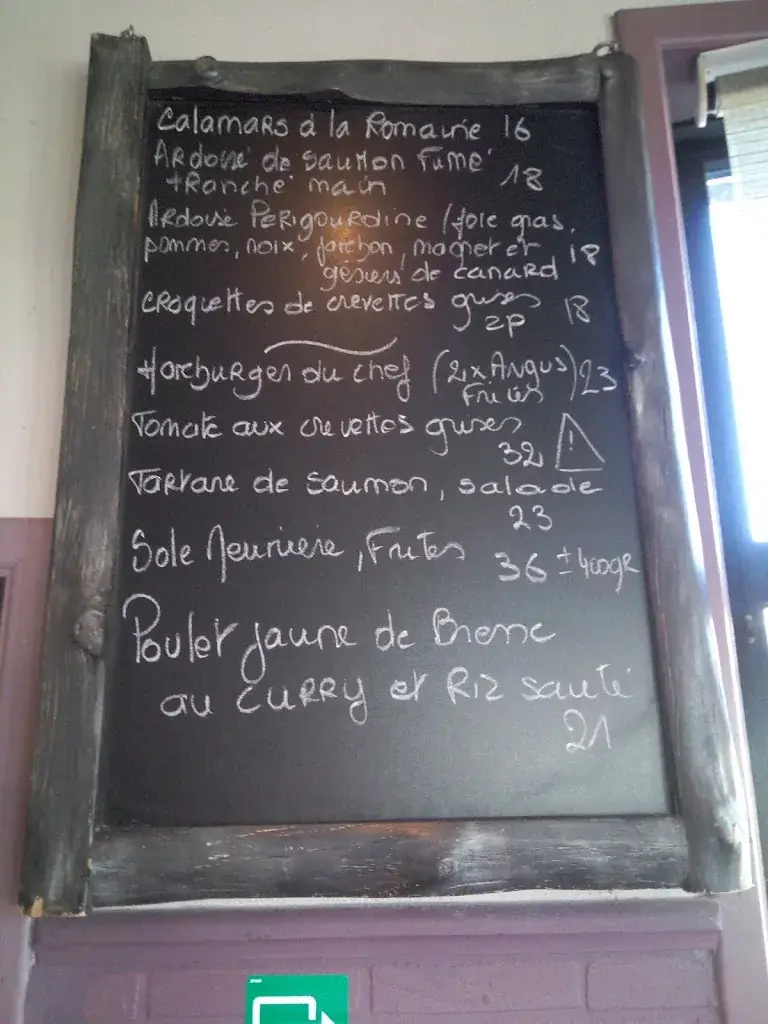 Calamars à la Romaine 16
Ardoise de saumon fumé
tranché main 18
Ardoise Périgourdine (foie gras,
pommes, noix, jambon, magret et 18
gesiers de canard
croquettes de crevettes grises
2P 18
Hamburger du chef (2x Angus) 23
Frites
Tomate aux crevettes grises
32 !
Tartare de saumon, salade
23
Sole Meunière, Frites
36 ± 400gr
Poulet jaune de
au curry et Riz sauté
21